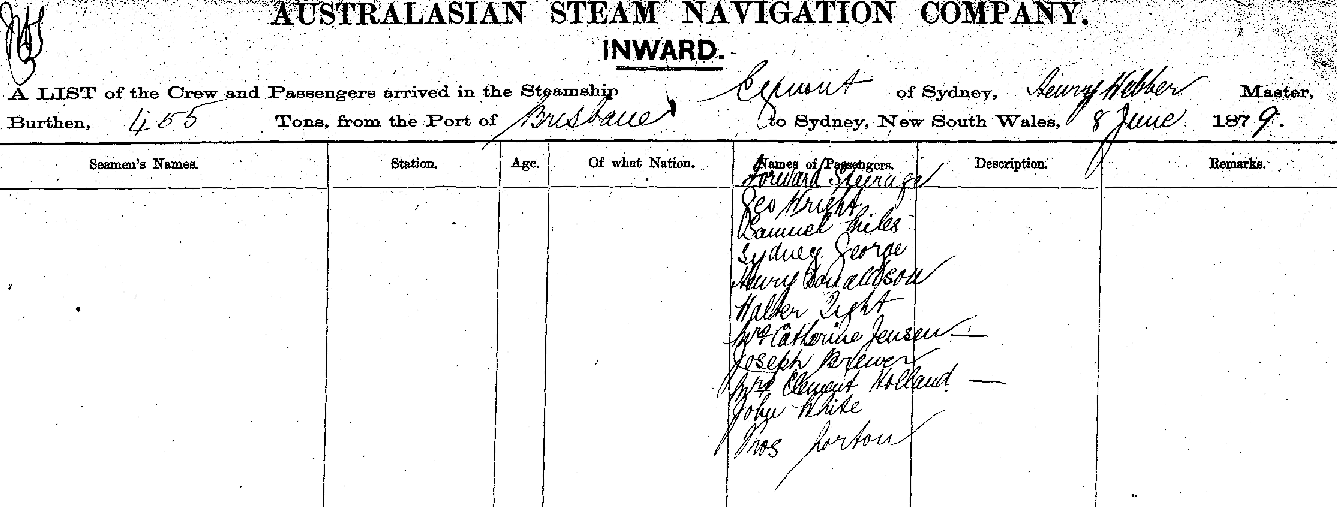 AUSTRALASIAN STEAM NAVIGATION COMPANY.
INWARD.
A LIST of the Crew and Passengers arrived in the Steamship Egmont of Sydney, Henry Webber Master,
Burthen, 455 Tons, from the Port of Brisbane to Sydney, New South Wales, 8 June 1879.
Seamen's Names. Station. Age. Of what Nation. Names of Passengers. Description. Remarks.
Forward Steerage
Geo Wright
Samuel Miles
Sydney George
Henry Donaldson
Walter Light
Mrs Catherine Jensen —
Joseph Brewer
Mrs Clement Holland —
John White
Thos